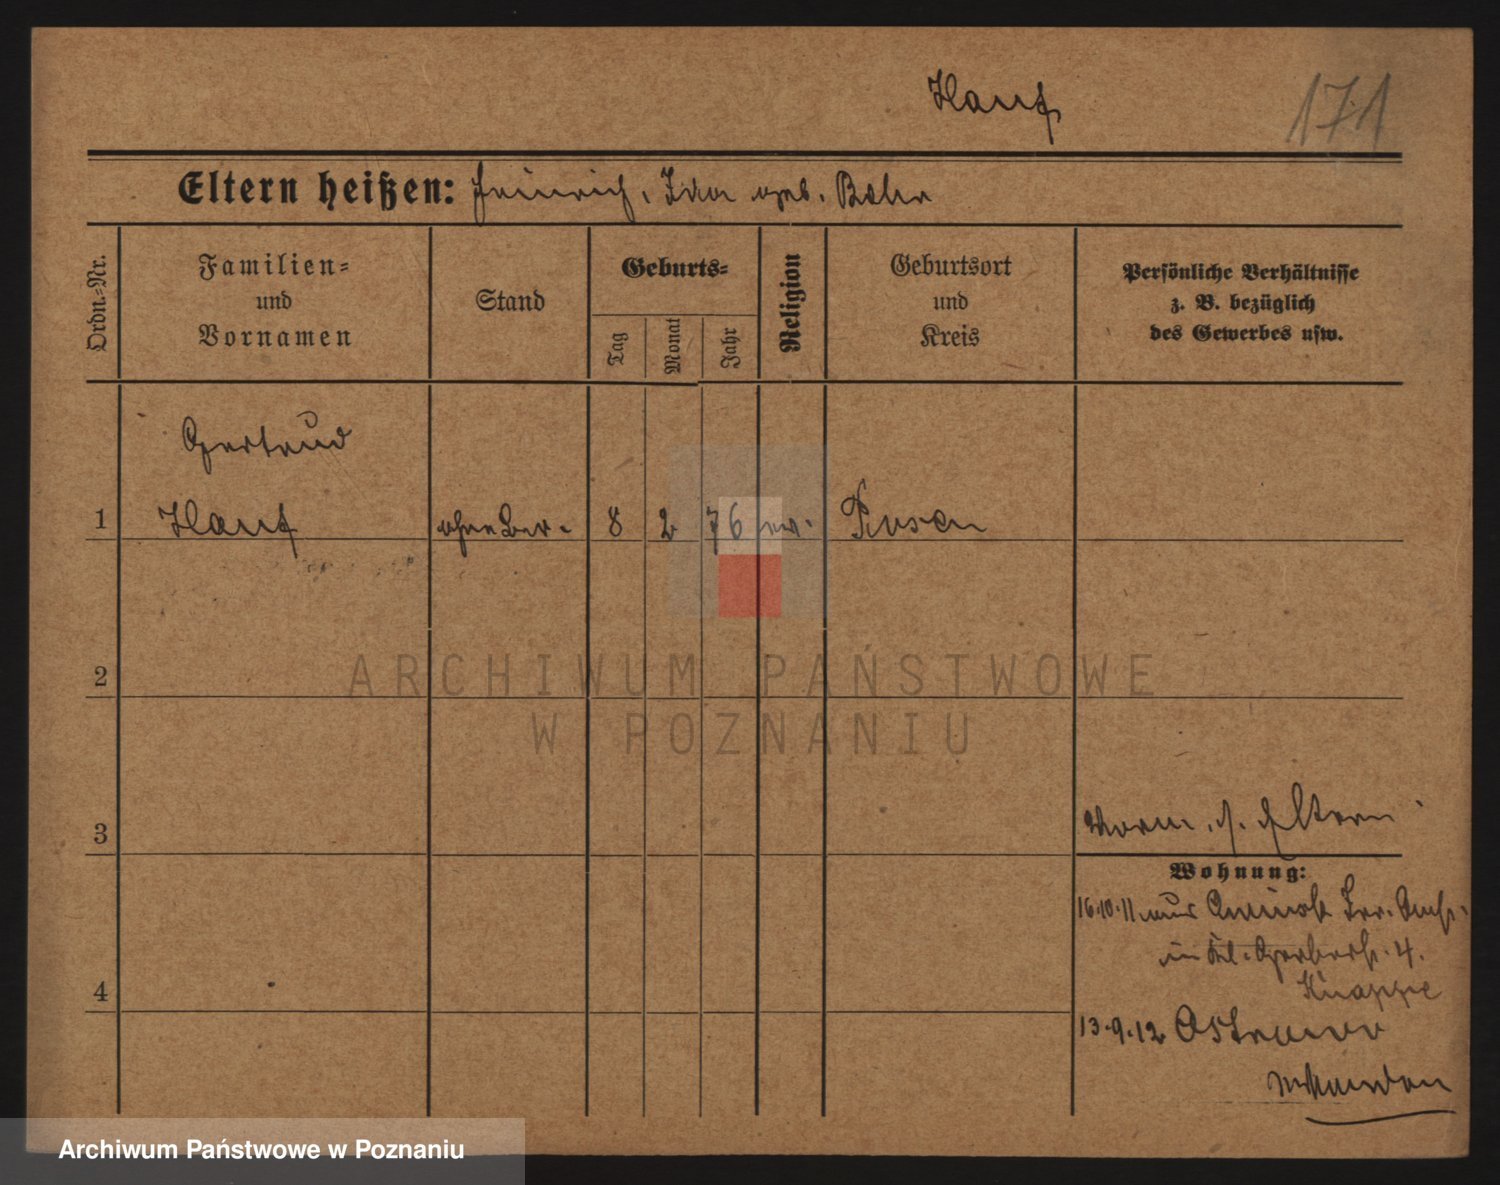 Hanf
171
Eltern heißen: Heinrich, Ida geb. Behr
Ordn.-Nr.
Familien- und Vornamen
Stand
Geburts-
Tag
Monat
Jahr
Religion
Geburtsort und Kreis
Persönliche Verhältnisse z. B. bezüglich des Gewerbes usw.
Gertrud
1 Hanf ohne Ber. 8 2 76 ev. Posen
2
3
Vorm. s. Eltern
Wohnung:
16.10.11 aus
in Kl. Gerberstr. 4.
Knappe
4
13.9.12
ARCHIWUM PAŃSTWOWE
W POZNANIU
Archiwum Państwowe w Poznaniu